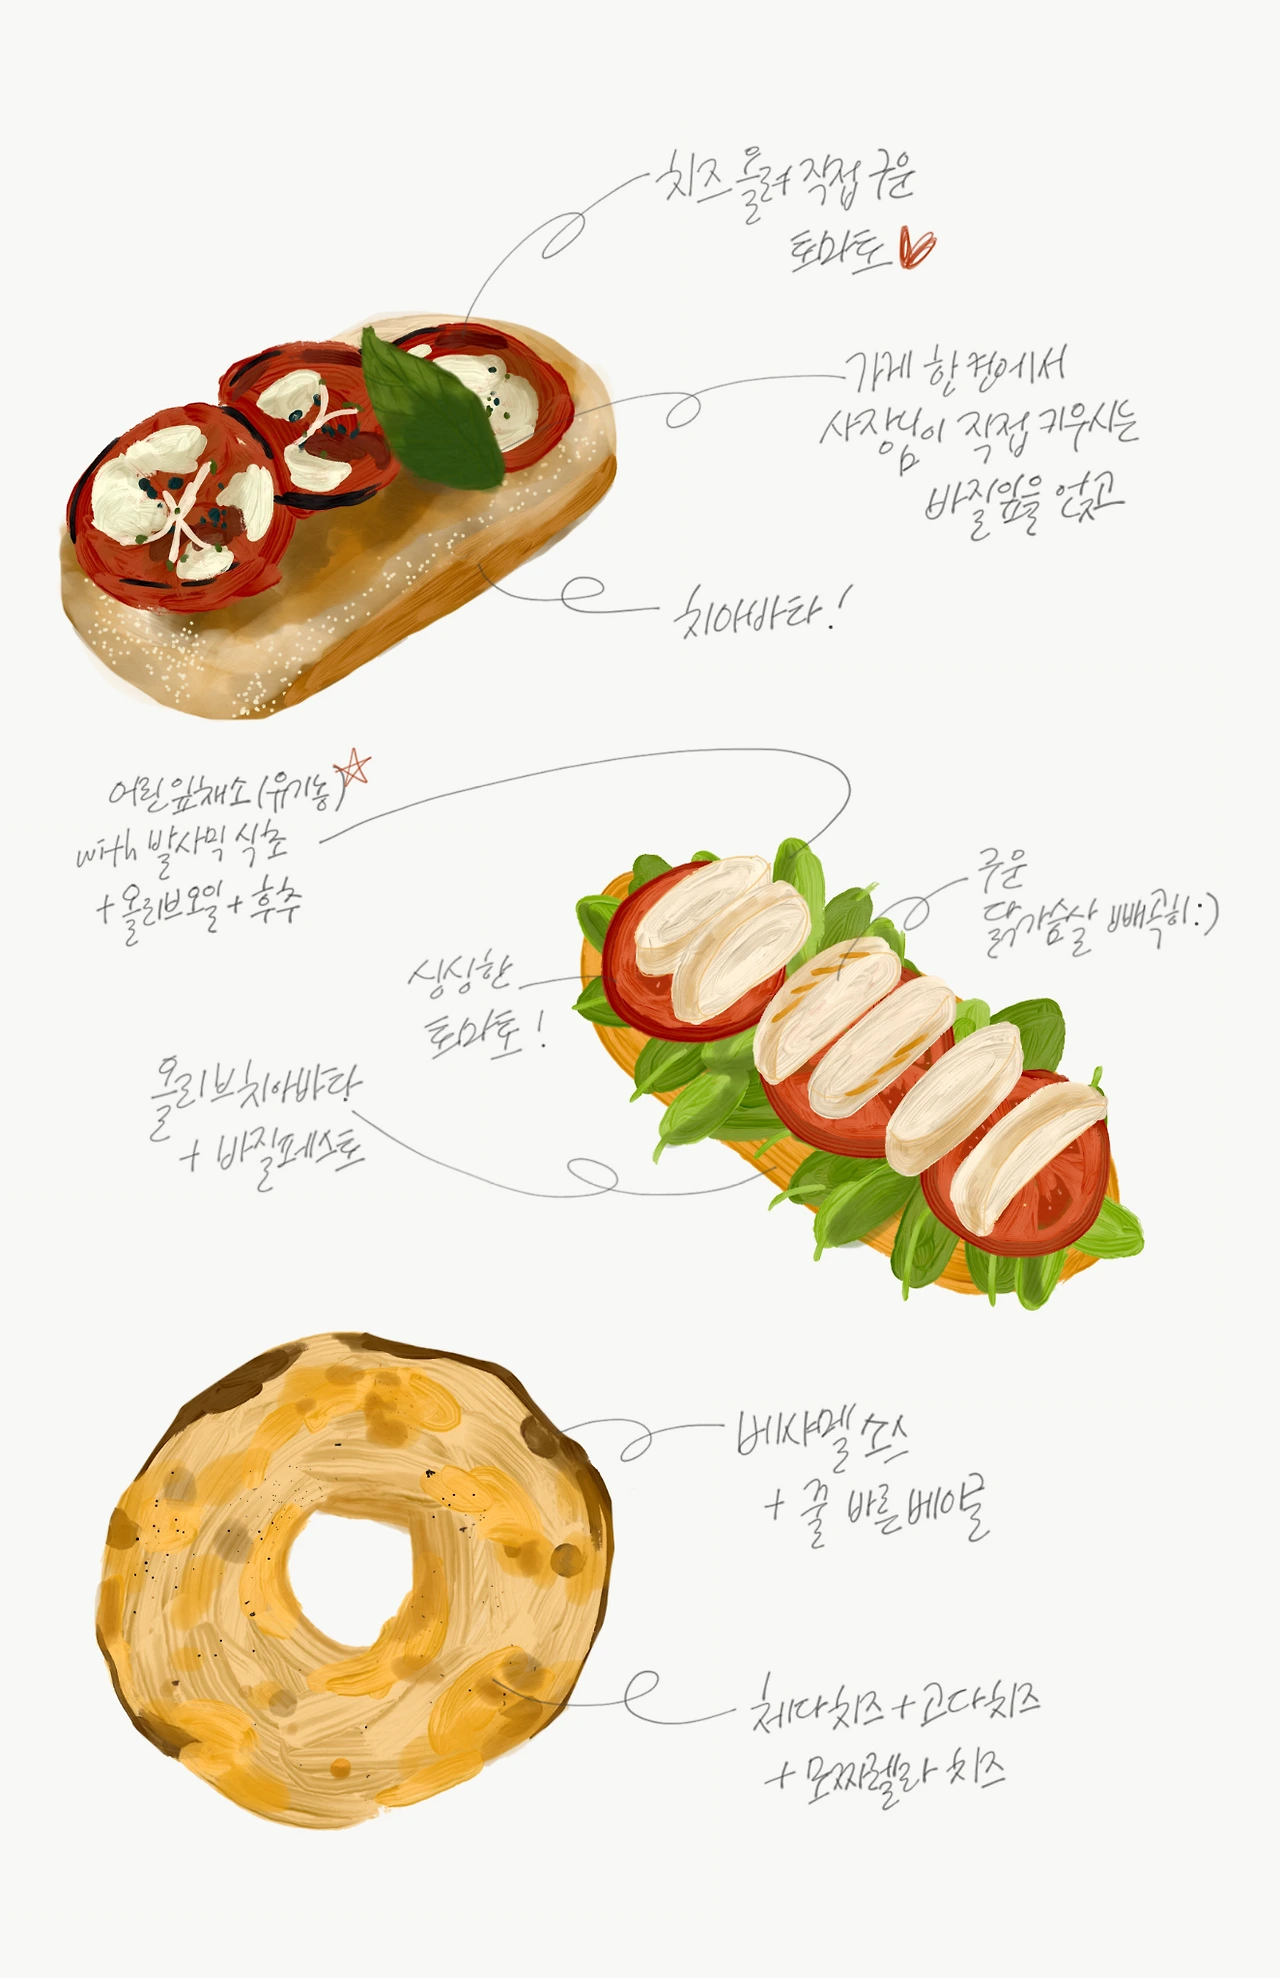 치즈 올려 직접 구운
토마토
가게 한 켠에서
사장님이 직접 키우시는
바질잎을 얹고
치아바타!
어린잎채소(유기농)
with 발사믹 식초
+ 올리브오일 + 후추
구운
닭가슴살 빼곡히:)
싱싱한
토마토!
올리브치아바타
+ 바질페스토
베샤멜 소스
+ 꿀 바른 베이글
체다치즈 + 고다치즈
+ 모짜렐라 치즈